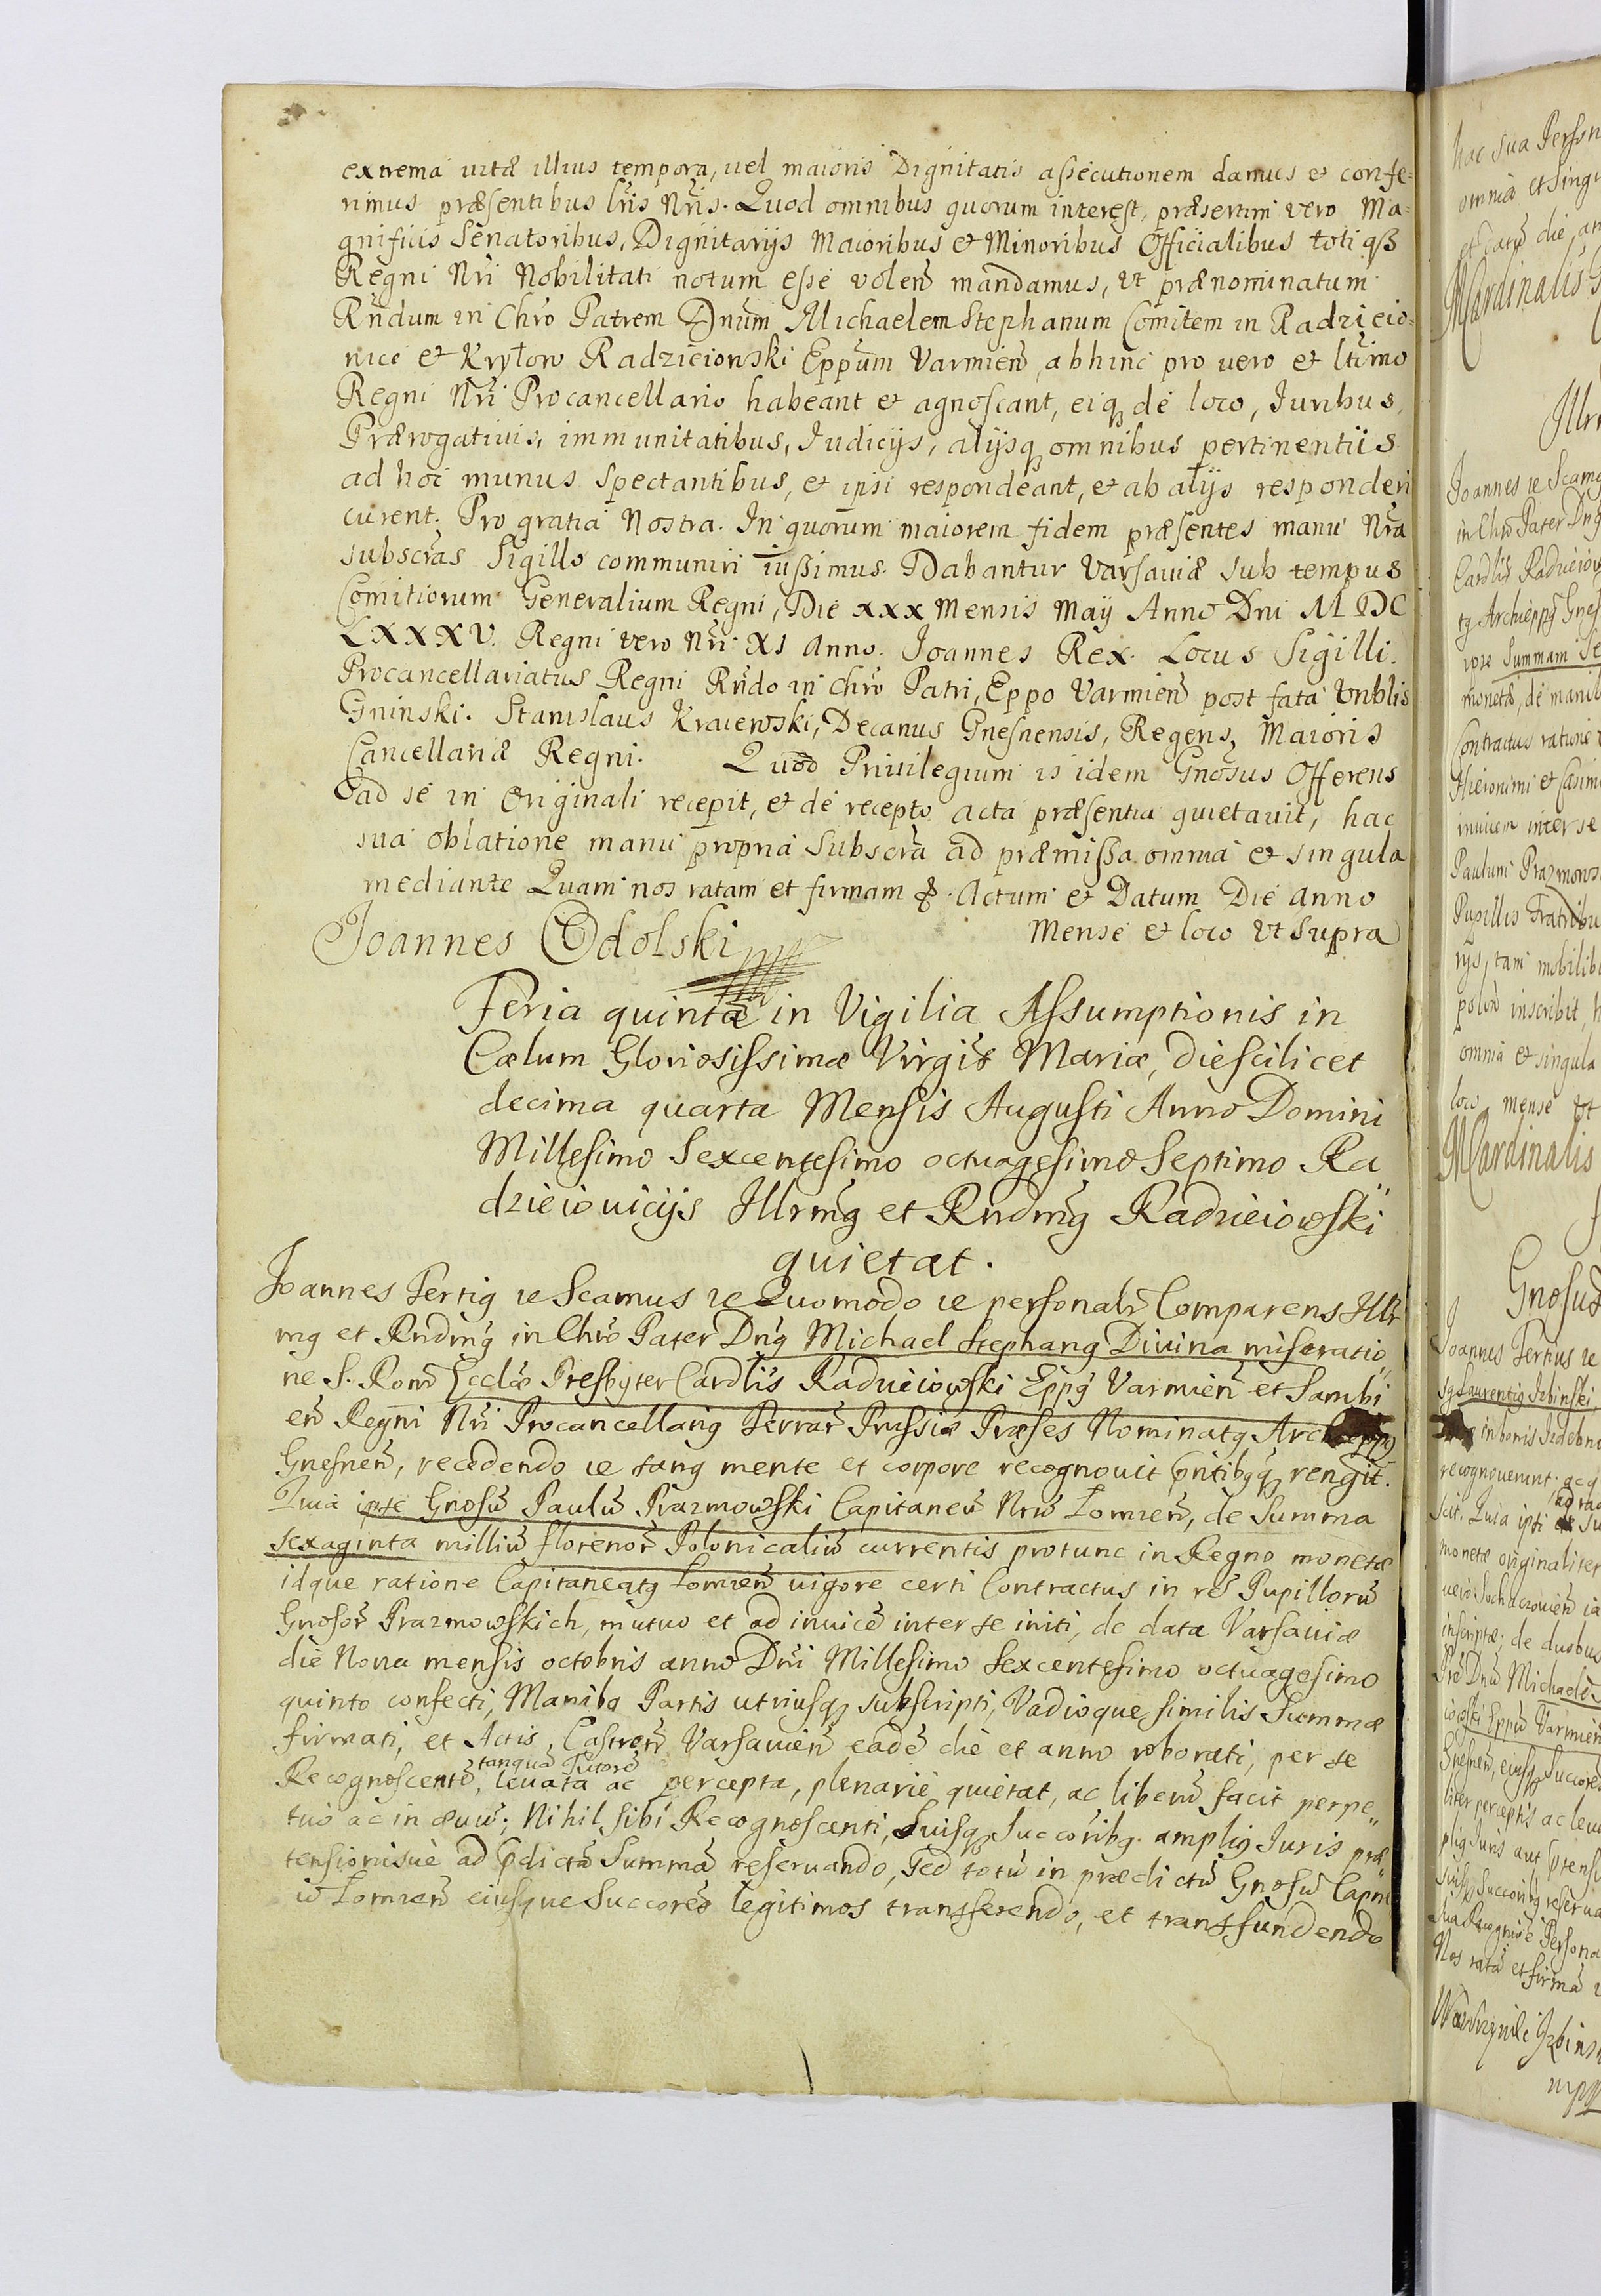 extrema uitæ illius tempora, uel maioris Dignitatis assecutionem damus et confe=
rimus præsentibus Lris Nris. Quod omnibus quorum interest, præsertim vero Ma=
gnificis Senatoribus, Dignitarijs Maioribus et Minoribus Officialibus totiqß
Regni Nri Nobilitati notum esse volen mandamus, ut prænominatum
Rndum in Chro Patrem Dnum Michaelem Stephanum Comitem in Radzieio=
nice et Kryłow Radzieiowski Eppum Varmien, abhinc pro uero et ltimo
Regni Nri Procancellario habeant et agnoscant, eiq de loco, Iuribus,
Prærogatiuis, immunitatibus, Iudicijs, alijsq omnibus pertinentiis
ad hoc munus spectantibus, et ipsi respondeant, et ab alijs responderi
curent. Pro gratia Nostra. In quorum maiorem fidem præsentes manu Nra
subscras Sigillo communiri iussimus. Dabantur Varsauiæ sub tempus
Comitiorum Generalium Regni, Die xxx Mensis Maij Anno Dni M DC
LXXXV. Regni vero Nri XI Anno. Joannes Rex. Locus Sigilli.
Procancellariatus Regni Rndo in Chro Patri, Eppo Varmien post fata
Gninski. Stanislaus Kraiewski, Decanus Gnesnensis, Regens Maioris
Cancellariæ Regni. Quod Priuilegium is idem Gnosus Offerens
ad se in Originali recepit, et de recepto acta præsentia quietauit, hac
sua oblatione manu propria subscra ad præmissa omnia et singula
mediante Quam nos ratam et firmam &. Actum et Datum Die Anno
Mense et loco Ut Supra
Joannes Odolski
Feria quinta in Vigilia Assumptionis in
Cælum Gloriosissimæ Virgis Mariæ, die scilicet
decima quarta Mensis Augusti Anno Domini
Millesimo Sexcentesimo octuagesimo Septimo Ra
dzieiouicijs Illrmg et Rndmg Radzieiowski
quietat.
Joannes Tertig ic Seamus ic Quomodo ic personalr Comparens Illr
mg et Rndmg in Chro Pater Dng Michael Stephang Diuina miseratio
ne S. Rom Ecclæ Presbyter Cardlis Radzieiowski Eppg Varmien et Sambi
en Regni Nri Procancellarig Terrar Prussiæ Præses Nominatg Archieppg
Gnesnen, recedendo ic sang mente et corpore recognouit pntibgq rengit.
Quia ipse Gnosu Paulu Prazmowski Capitaneu Nru Lomzen, de Summa
sexaginta milliu florenor Polonicaliu currentis protunc in Regno monetæ
idque ratione Capitaneatg Lomzen uigore certi Contractus in re Pupilloru
Gnosor Prazmowskich, mutuo et ad inuice inter se initi, de data Varsauiæ
die Nona mensis octobris anno Dni Millesimo Sexcentesimo octuagesimo
quinto confecti, Manibg Partis utriusq subscripti, Vadioque similis Summæ
firmati, et Actis Castren Varsauien eade die et anno roborati, per se
Recognoscente, tanqua Tutore leuata ac percepta, plenarie quietat, ac liberu facit perpe
tuo ac in æuu; Nihil sibi Recognoscenti, suisq Succoribg. amplig Iuris præ
tensionisuè ad pdicta Summa reseruando, sed totu in prædictu Gnosu Capne
u Lomzen eiusque Succores legitimos transferendo, et transfundendo
hac sua Person
omnia et singu
et Datu die, an
MCardinalis
Illr
Joannes ic Seamg
in Chro Pater Dng
Cardlis Radzieiow
tg Archieppg Gnes
ipse Summam Se
monetæ, de manib
Contractus ratione
Hieronimi et Casimi
inuicem inter se
Pauluni Prazmows
Pupillis Fratribu
rijs, tam mobilib
inscribit, h
omnia et singula
loco mense Ut
MCardinalis
Gnosus
Joannes Tertius ic
sg Laurentig Izbinski
in bonis
recognouerunt
scit. Quia ipsi su
monetæ originaliter
inscriptæ; de duobus
Pre Dnu Michaele
iowski Eppu Varmien
Gnesnen, eiusq Succores
liter perceptis ac leua
plig Iuris aut ptensi
suisq Succoribg reserua
Persona
Nos rata et firma
Izbinsk
mpp